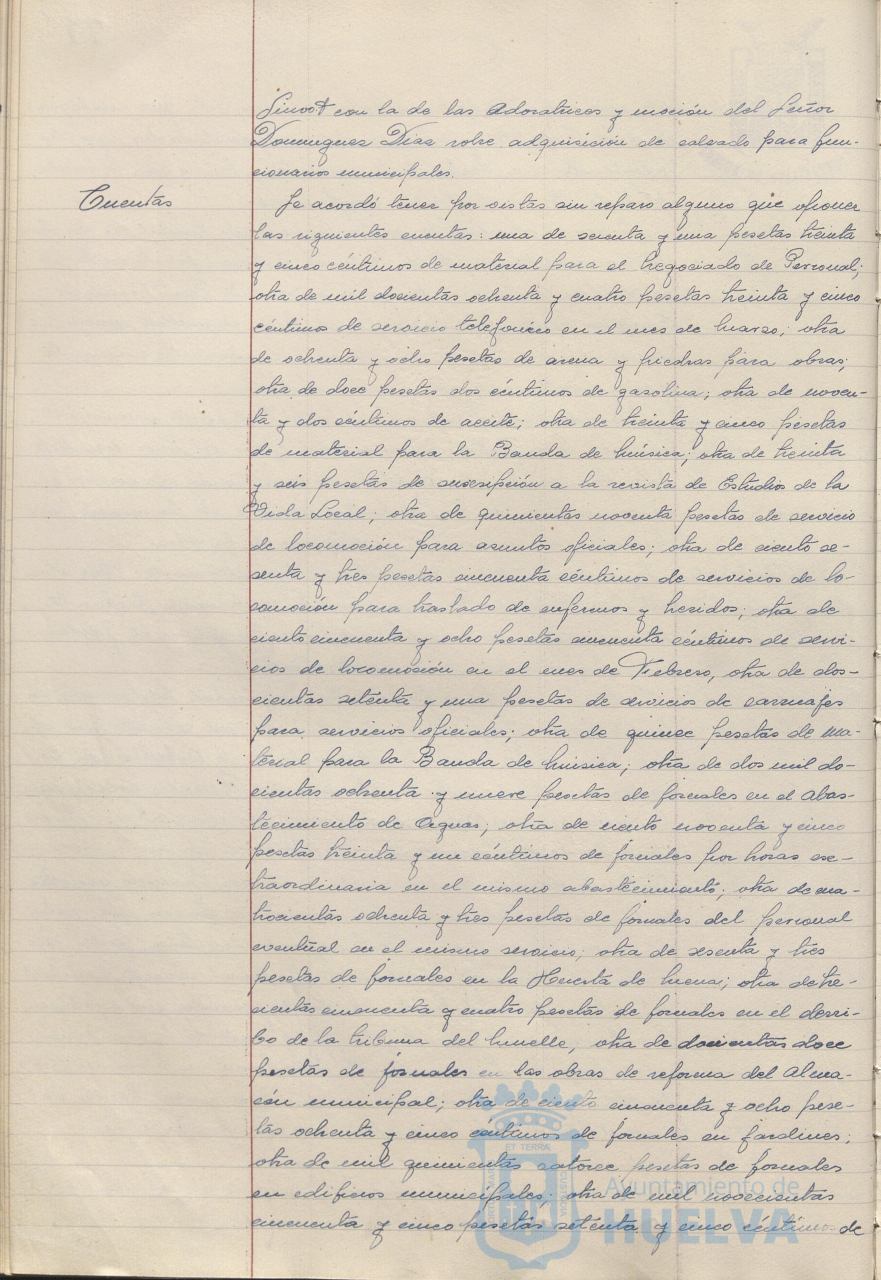 con la de las Adoratrices y moción del Señor
Dominguez Díaz sobre adquisición de calzado para fun-
cionarios municipales.
Cuentas
Se acordó tener por vistas sin reparo alguno que oponer
las siguientes cuentas: una de sesenta y una pesetas treinta
y cinco céntimos de material para el Negociado de Personal;
otra de mil doscientas ochenta y cuatro pesetas treinta y cinco
céntimos de servicio telefónico en el mes de Marzo; otra
de ochenta y ocho pesetas de arena y piedras para obras;
otra de doce pesetas dos céntimos de gasolina; otra de noven-
ta y dos céntimos de aceite; otra de treinta y cinco pesetas
de material para la Banda de Música; otra de treinta
y seis pesetas de suscripción a la revista de Estudios de la
Vida Local; otra de quinientas noventa pesetas de servicio
de locomoción para asuntos oficiales; otra de ciento se-
senta y tres pesetas cincuenta céntimos de servicios de lo-
comoción para traslado de enfermos y heridos; otra de
ciento cincuenta y ocho pesetas cincuenta céntimos de servi-
cios de locomosión en el mes de Febrero, otra de dos-
cientas setenta y una pesetas de servicios de carruajes
para servicios oficiales; otra de quince pesetas de ma-
terial para la Banda de Música; otra de dos mil do-
cientas ochenta y nueve pesetas de jornales en el Abas-
tecimiento de Aguas; otra de ciento noventa y cinco
pesetas treinta y un céntimos de jornales por horas ex-
traordinaria en el mismo abastecimiento; otra de cua-
trocientas ochenta y tres pesetas de jornales del personal
eventual en el mismo servicio; otra de sesenta y tres
pesetas de jornales en la Huerta de Mena; otra de tre-
cientas cincuenta y cuatro pesetas de jornales en el derri-
bo de la tribuna del Muelle, otra de doscientas doce
pesetas de jornales en las obras de reforma del Alma-
cén municipal; otra de ciento cincuenta y ocho pese-
tas ochenta y cinco centimos de jornales en jardines;
otra de mil quinientas catorce pesetas de jornales
en edificios municipales; otra de mil novecientas
cincuenta y cinco pesetas setenta y cinco céntimos de
ET TERRA
Ayuntamiento de
HUELVA